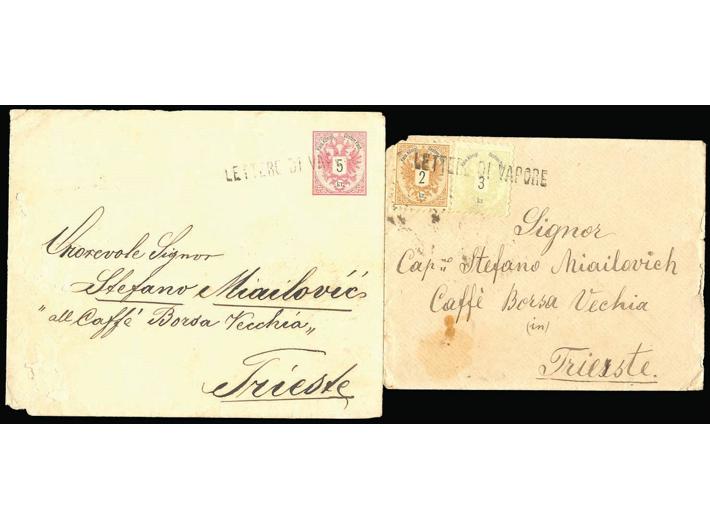 LETTERE DI VAP
5
kr.
Onorevole Signor
Stefano Miailović
"all Caffé Borsa Vecchia„
Trieste
LETTERE DI VAPORE
2
3
kr
Signor
Cap.ne Stefano Miailovich
Caffè Borsa Vechia
(in)
Trieste.